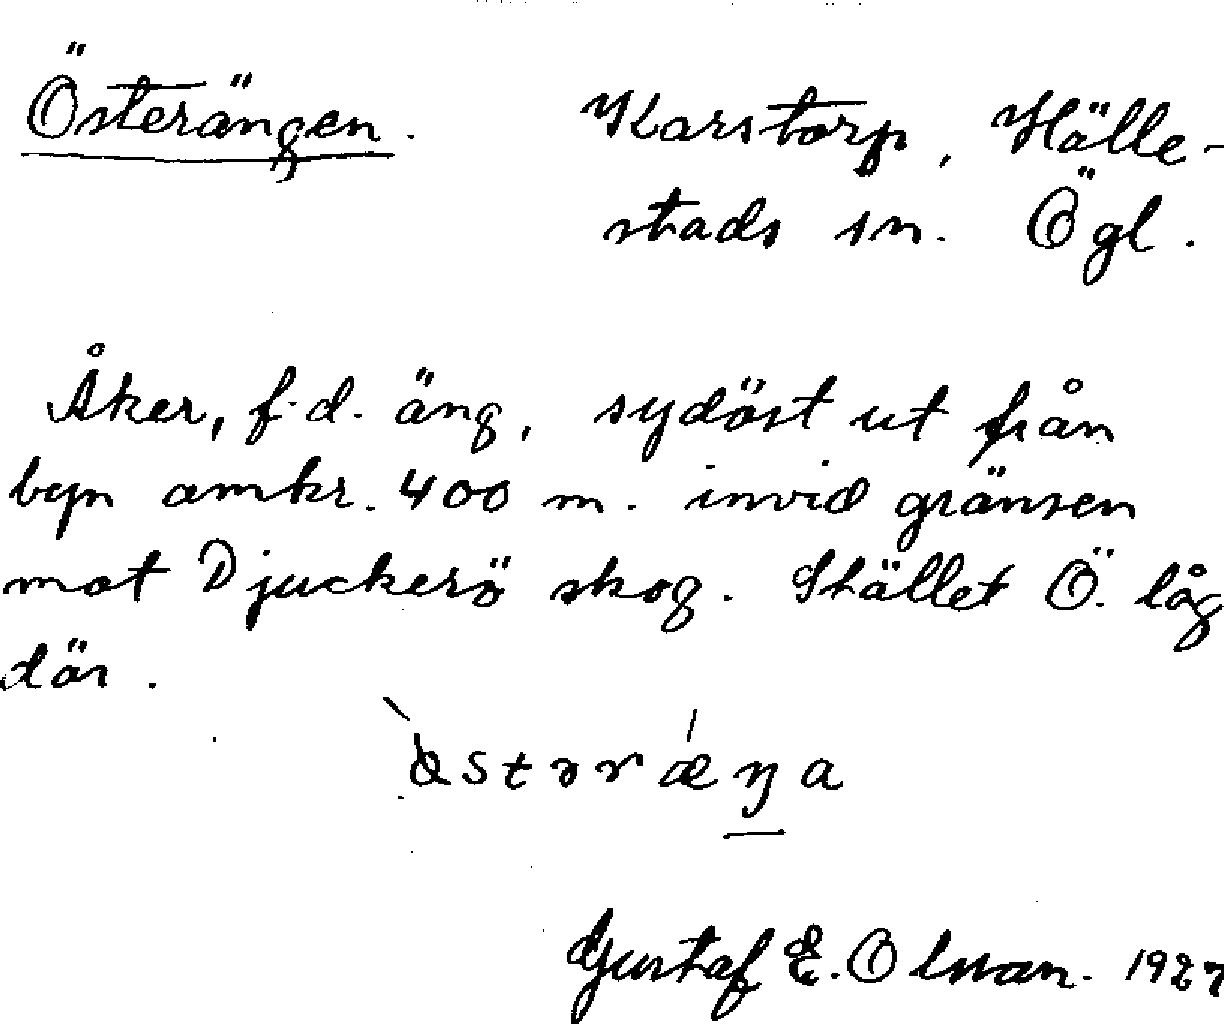 Österängen. Karstorp, Hälle-
stads sn. Ögl.
Åker, f.d. äng, sydöst ut från
byn omkr. 400 m. invid gränsen
mot Djuckerö skog. Stället Ö. låg
där.
Gustaf E. Olsson. 1927